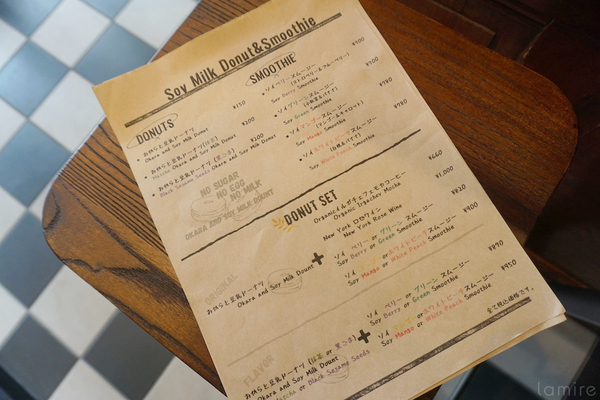 Soy Milk Donut&Smoothie
DONUTS
おからと豆乳ドーナツ ¥150
Okara and Soy Milk Dounut
おからと豆乳ドーナツ(抹茶) ¥200
Matcha Okara and Soy Milk Dounut
おからと豆乳ドーナツ(黒ごま) ¥200
Black Sesame Seeds Okara and Soy Milk Dounut
NO SUGAR
NO EGG
NO MILK
OKARA AND SOY MILK DOUNT
SMOOTHIE
ソイベリースムージー ¥500
Soy Berry Smoothie
ソイグリーンスムージー ¥500
Soy Green Smoothie
ソイマンゴースムージー ¥580
Soy Mango Smoothie
ソイホワイトピーチスムージー ¥580
Soy White Peach Smoothie
DONUT SET
Organicイルガチェフェモカコーヒー ¥660
Organic Irgaches Mocha
New York ロゼワイン ¥1,000
New York Rose Wine
ORIGINAL
おからと豆乳ドーナツ
Okara and Soy Milk Dounut
+
ソイ ベリー or グリーン スムージー ¥820
Soy Berry or Green Smoothie
ソイ マンゴー or ホワイトピーチ スムージー ¥900
Soy Mango or White Peach Smoothie
FLAVOR
おからと豆乳ドーナツ(抹茶 or 黒ごま)
Okara and Soy Milk Dounut
Matcha or Black Sesame Seeds
+
ソイ ベリー or グリーン スムージー ¥870
Soy Berry or Green Smoothie
ソイ マンゴー or ホワイトピーチ スムージー ¥950
Soy Mango or White Peach Smoothie
全て税込価格です。
lamire